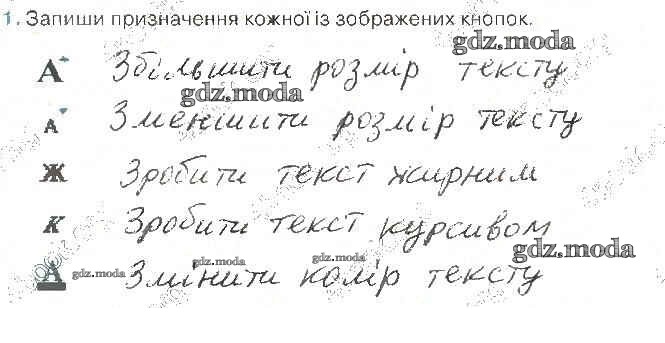 1. Запиши призначення кожної із зображених кнопок.
gdz.moda
А Збільшити розмір тексту
gdz.moda
А Зменшити розмір тексту
Ж Зробити текст жирним
К Зробити текст курсивом
gdz.moda
А gdz.moda Змінити колір тексту
gdz.moda gdz.moda gdz.moda